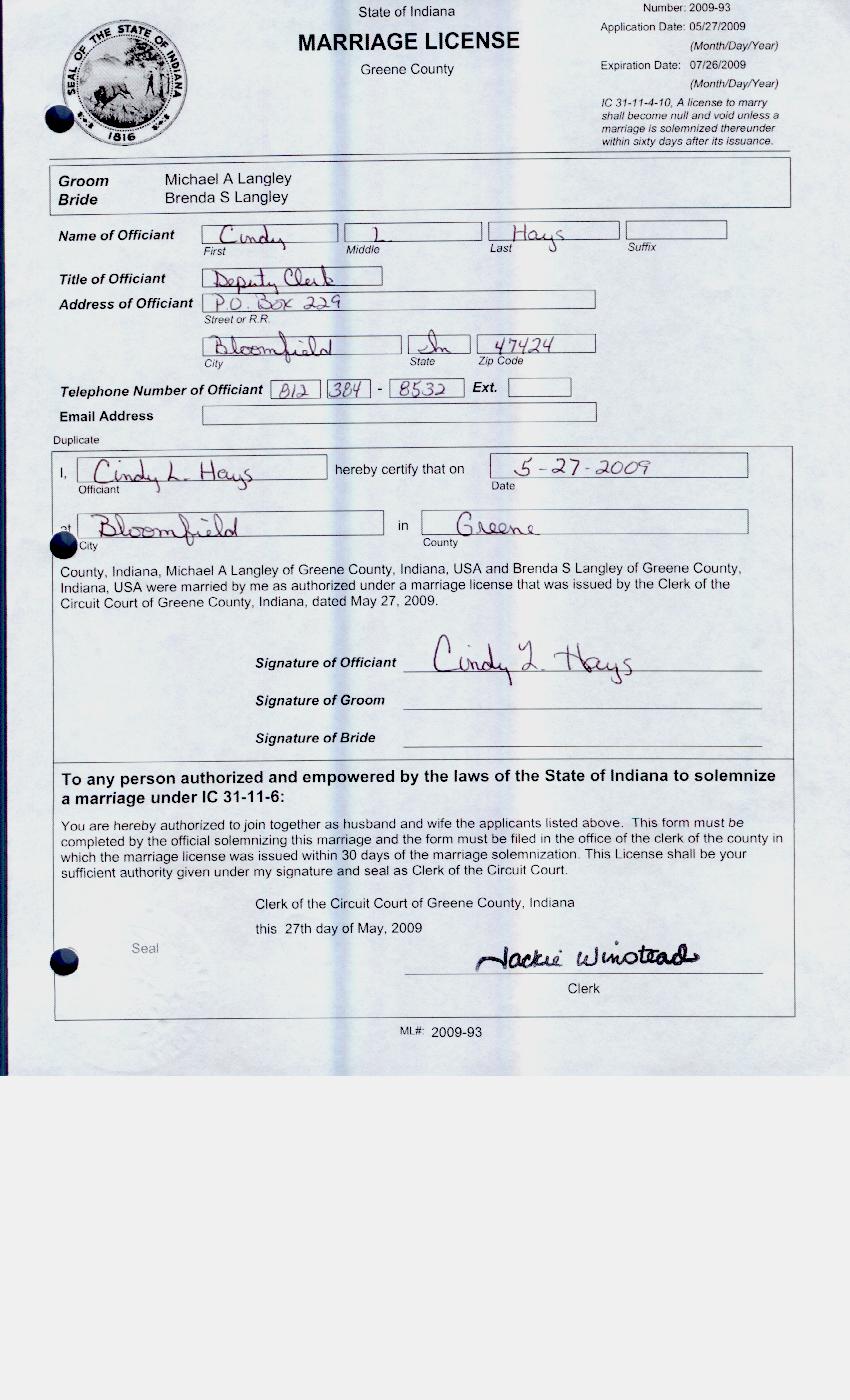 State of Indiana
MARRIAGE LICENSE
Greene County
Number: 2009-93
Application Date: 05/27/2009
(Month/Day/Year)
Expiration Date: 07/26/2009
(Month/Day/Year)
IC 31-11-4-10, A license to marry
shall become null and void unless a
marriage is solemnized thereunder
within sixty days after its issuance.
SEAL OF THE STATE OF INDIANA
1816
Groom Michael A Langley
Bride Brenda S Langley
Name of Officiant Cindy L Hays
First Middle Last Suffix
Title of Officiant Deputy Clerk
Address of Officiant P.O. Box 229
Street or R.R.
Bloomfield In 47424
City State Zip Code
Telephone Number of Officiant 812 384 - 8532 Ext.
Email Address
Duplicate
I, Cindy L. Hays hereby certify that on 5-27-2009
Officiant Date
at Bloomfield in Greene
City County
County, Indiana, Michael A Langley of Greene County, Indiana, USA and Brenda S Langley of Greene County,
Indiana, USA were married by me as authorized under a marriage license that was issued by the Clerk of the
Circuit Court of Greene County, Indiana, dated May 27, 2009.
Signature of Officiant Cindy L. Hays
Signature of Groom
Signature of Bride
To any person authorized and empowered by the laws of the State of Indiana to solemnize
a marriage under IC 31-11-6:
You are hereby authorized to join together as husband and wife the applicants listed above. This form must be
completed by the official solemnizing this marriage and the form must be filed in the office of the clerk of the county in
which the marriage license was issued within 30 days of the marriage solemnization. This License shall be your
sufficient authority given under my signature and seal as Clerk of the Circuit Court.
Clerk of the Circuit Court of Greene County, Indiana
this 27th day of May, 2009
Seal
Jackie Winstead
Clerk
ML#: 2009-93